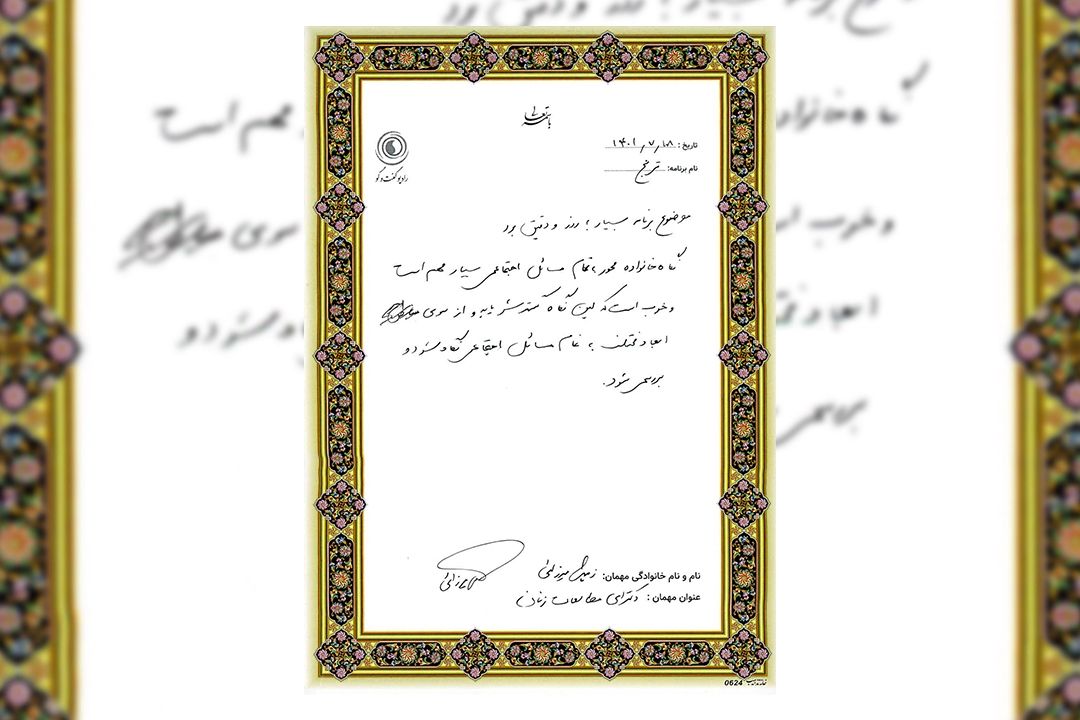 باسمه تعالی
تاریخ: ۱۴۰۱٫۷٫۱۸
نام برنامه: ترنج
رادیو گفت‌وگو
موضوع برنامه بسیار به روز و دقیق بود
نگاه خانواده محور به تمام مسائل اجتماعی بسیار مهم است
و خوب است که این نگاه گسترش یابد و از سوی
ابعاد مختلف به تمام مسائل اجتماعی نگاه شود و
بررسی شود.
نام و نام خانوادگی مهمان: میرزائی
عنوان مهمان: دکترای مطالعات زنان
0624